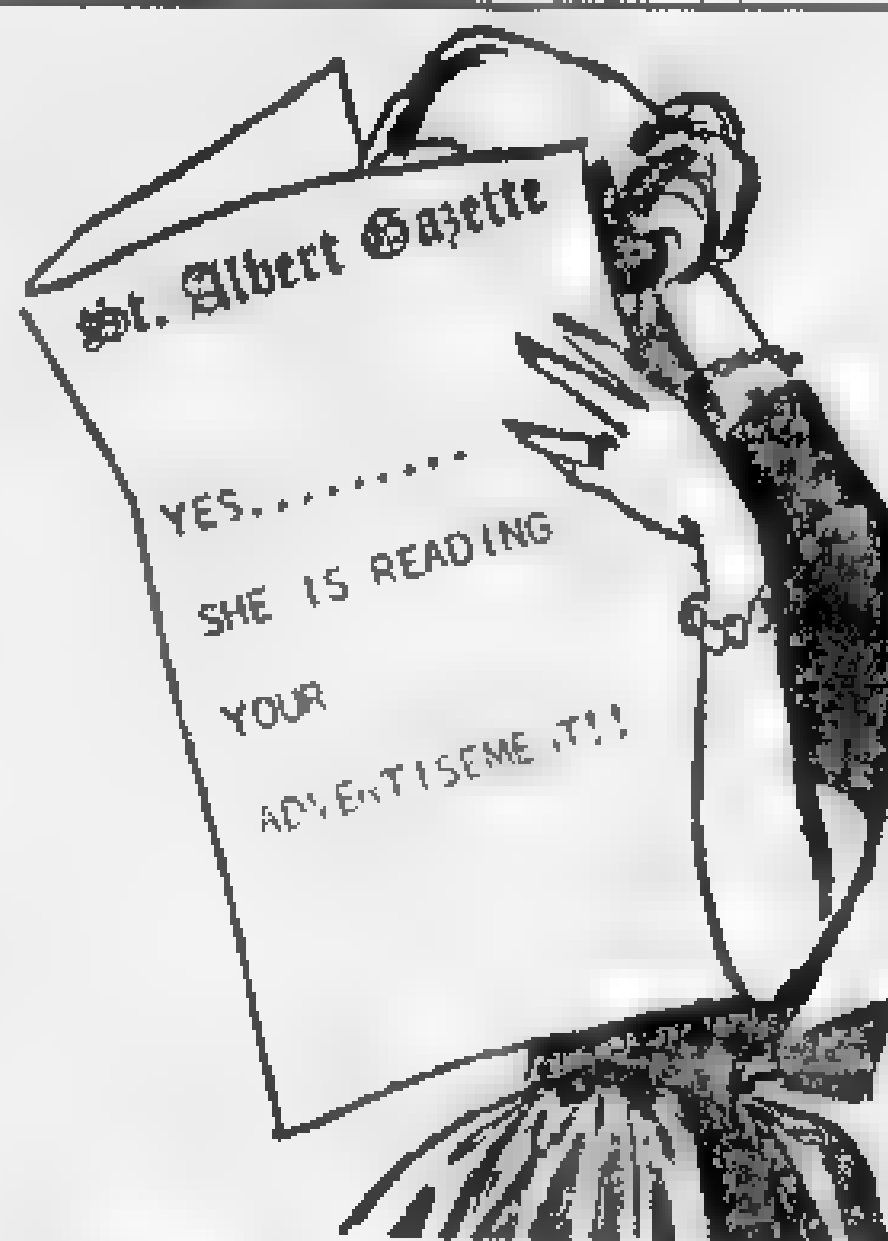 St. Albert Gazette
YES.........
SHE IS READING
YOUR
ADVERTISEMENT!!